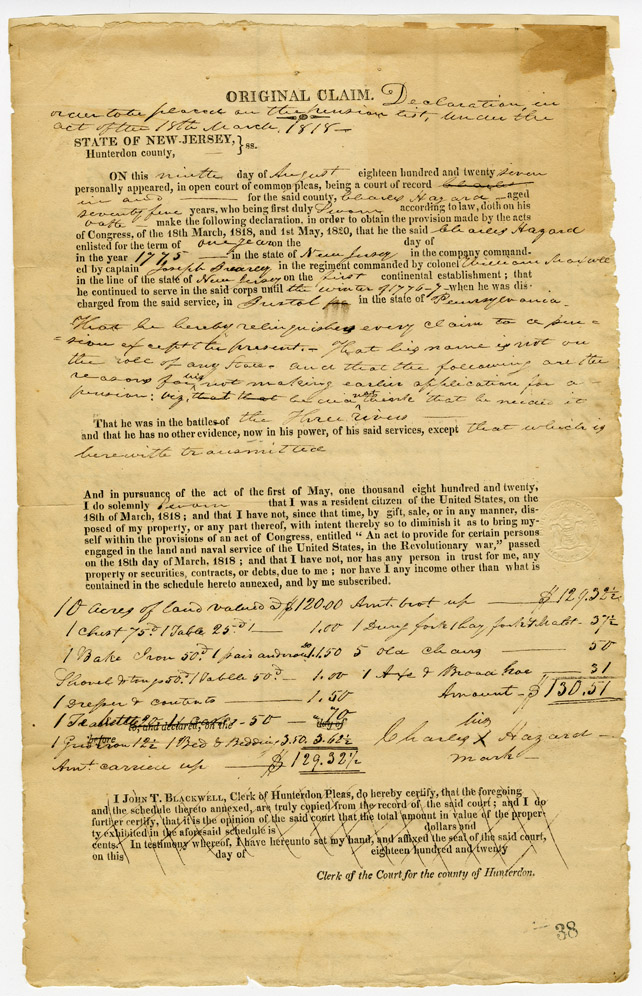 ORIGINAL CLAIM. Declaration, in
order to be placed on the pension list, under the
act of the 18th March, 1818—
STATE OF NEW-JERSEY, } ss.
Hunterdon county,
ON this ninth day of August eighteen hundred and twenty seven
personally appeared, in open court of common pleas, being a court of record Charles
in and — for the said county, Charles Hazard — aged
seventy five years, who being first duly Sworn according to law, doth on his
oath make the following declaration, in order to obtain the provision made by the acts
of Congress, of the 18th March, 1818, and 1st May, 1820, that he the said Charles Hazard
enlisted for the term of one year on the day of
in the year 1775 — in the state of New Jersey in the company command-
ed by captain Joseph Brearley in the regiment commanded by colonel William Maxwell
in the line of the state of New Jersey on the first continental establishment; that
he continued to serve in the said corps until the winter of 1776-7 — when he was dis-
charged from the said service, in Bristol in the state of Pennsylvania.
That he hereby relinquishes every claim to a pen-
-sion except the present. - That his name is not on
the roll of any State. and that the following are the
reasons for his not making earlier application for a
pension: viz, that he did not think that he needed it
That he was in the battles of the three rivers
and that he has no other evidence, now in his power, of his said services, except that which is
herewith transmitted
And in pursuance of the act of the first of May, one thousand eight hundred and twenty,
I do solemnly Sworn that I was a resident citizen of the United States, on the
18th of March, 1818; and that I have not, since that time, by gift, sale, or in any manner, dis-
posed of my property, or any part thereof, with intent thereby so to diminish it as to bring my-
self within the provisions of an act of Congress, entitled “ An act to provide for certain persons
engaged in the land and naval service of the United States, in the Revolutionary war,” passed
on the 18th day of March, 1818; and that I have not, nor has any person in trust for me, any
property or securities, contracts, or debts, due to me; nor have I any income other than what is
contained in the schedule hereto annexed, and by me subscribed.
10 acres of land valued a $120.00 Amt. brot up — $129.32½
1 Chest 75d 1 Table 25d — 1.00 1 Dung fork 1 hay fork & — 37½
1 Bake Iron 50d 1 pair andirons 1.50 5 old chairs — 50
Shovel & tongs 50d 1 Table 50d — 1.00 1 Axe & Broad hoe — 31
1 dresser & contents — 1.50 Amount — $130.51
1 Tea kettle 20 — 50 — 70
to, and declared, on the day of
before
1 Gridiron 12½ 1 Bed & Bedding 3.50. 3.62½
Amt. carried up — $129.32½
his
Charles X Hazard
mark
I JOHN T. BLACKWELL, Clerk of Hunterdon Pleas, do hereby certify, that the foregoing
and the schedule thereto annexed, are truly copied from the record of the said court; and I do
further certify, that it is the opinion of the said court that the total amount in value of the proper-
ty exhibited in the aforesaid schedule is dollars and
cents. In testimony whereof, I have hereunto set my hand, and affixed the seal of the said court,
on this day of eighteen hundred and twenty
Clerk of the Court for the county of Hunterdon.
38